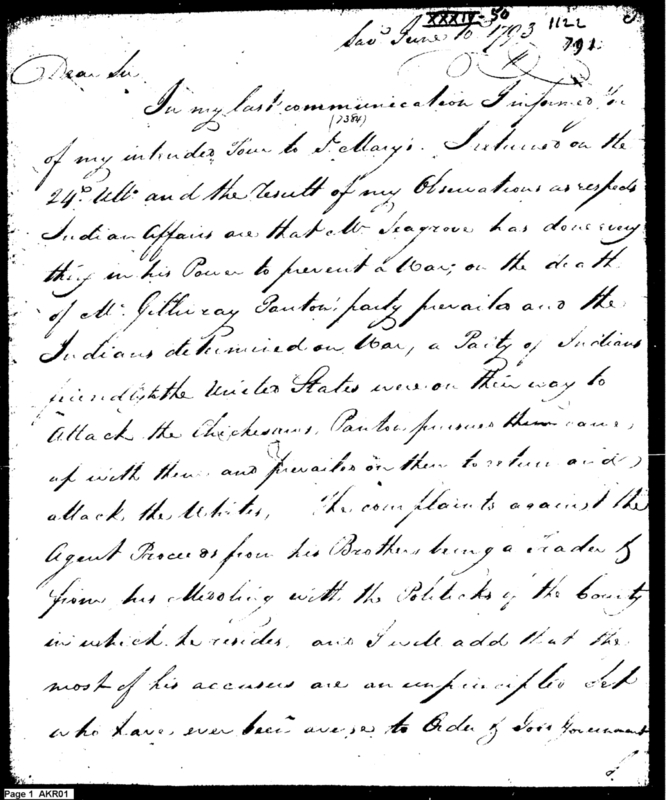 XXXIV-50
1122
791
Sav.h June 10th 1793
Dear Sir
In my last communication I informed You
(7384)
of my intended Tour to St Mary's. I returned on the
24th Ulto and the result of my Observations as respects
Indian Affairs are that Mr Seagrove has done every
thing in his Power to prevent a War; on the death
of Mc Gillivray Panton's party prevailed and the
Indians determined on War, a Party of Indians
friendly to the United States were on their way to
Attack the Chickesaws, Panton pursued them came
up with them and prevailed on them to return and
attack the Whites, The complaints against the
Agent Proceeds from his Brothers being a Trader &
from his Meddling with the Politicks of the County
in which he resides, and I will add that the
most of his accusers are an unprincipled Set
who have ever been averse to Order & Good Government
Page 1 AKR01